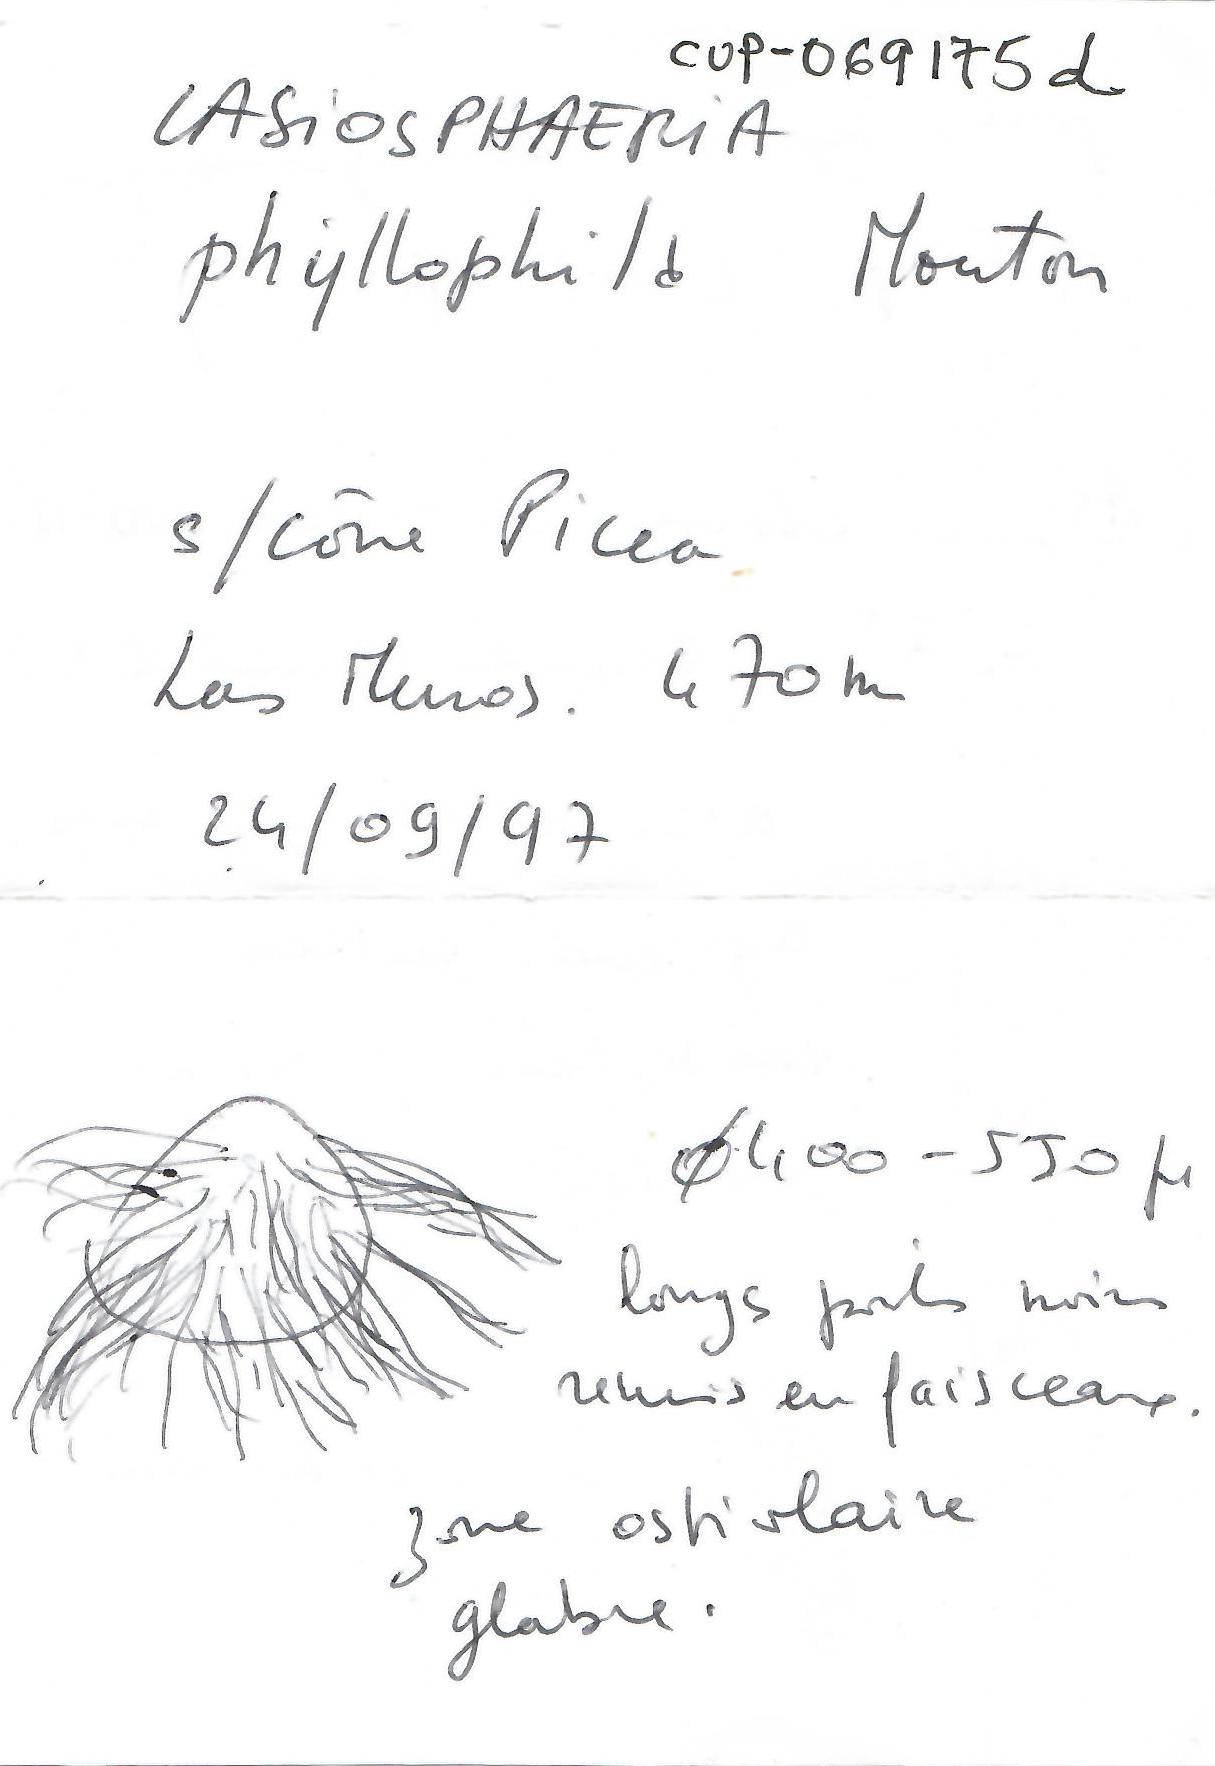 CUP-069175d
LASiOSPHAERiA
phyllophila Mouton
s/cône Picea
Las Muros. 470m
24/09/97
ø400-550µ
longs poils noirs
réunis en faisceaux.
zone ostiolaire
glabre.